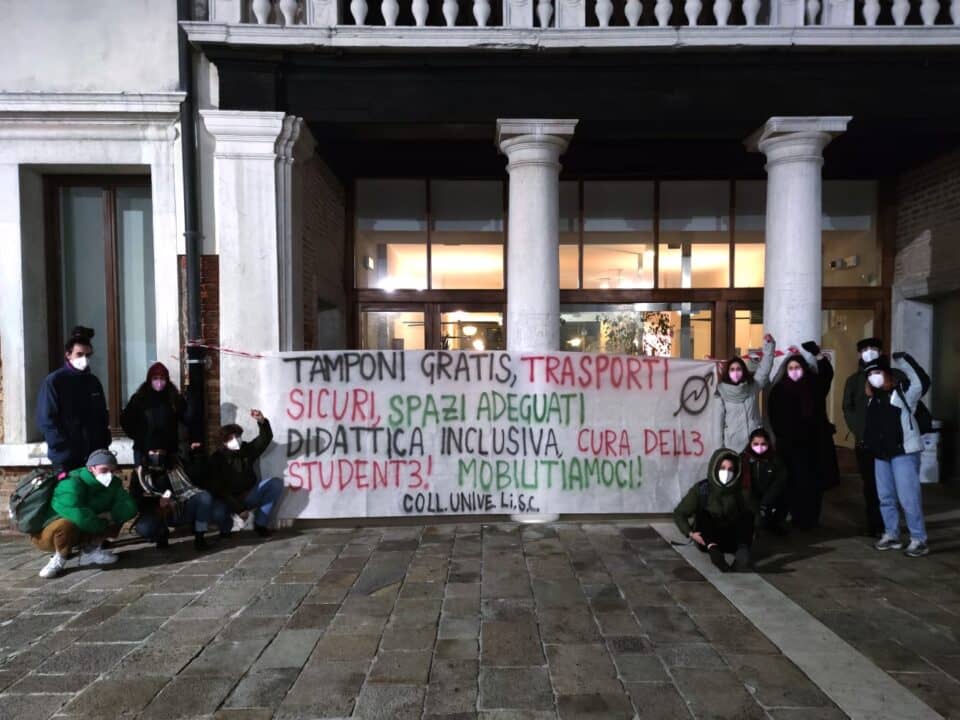 TAMPONI GRATIS, TRASPORTI
SICURI, SPAZI ADEGUATI
DIDATTICA INCLUSIVA, CURA DELL3
STUDENT3! MOBILITIAMOCI!
COLL. UNIVE Li.S.C.